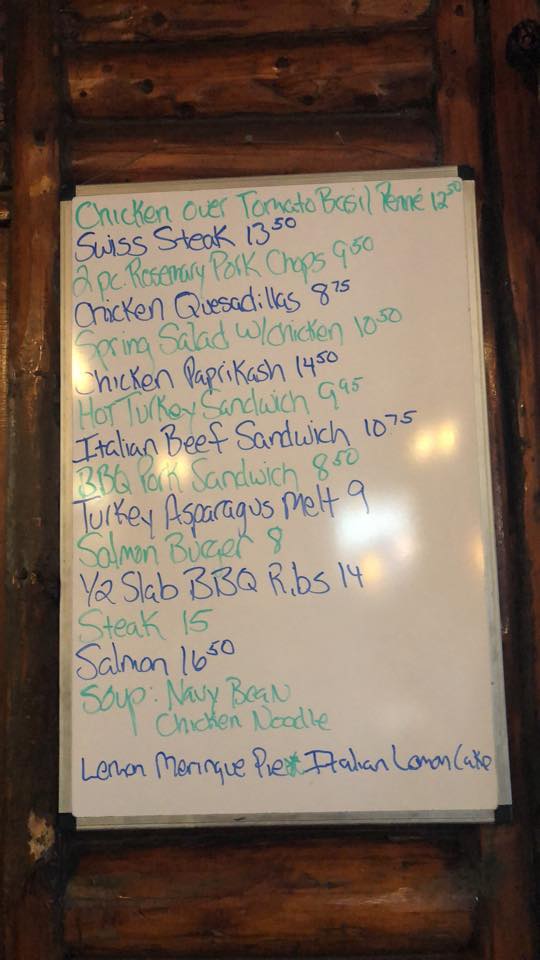 Chicken over Tomato Basil Penné 12⁵⁰
Swiss Steak 13⁵⁰
2 pc. Rosemary Pork Chops 9⁵⁰
Chicken Quesadillas 8⁷⁵
Spring Salad w/chicken 10⁵⁰
Chicken Paprikash 14⁵⁰
Hot Turkey Sandwich 9⁹⁵
Italian Beef Sandwich 10⁷⁵
BBQ Pork Sandwich 8⁵⁰
Turkey Asparagus Melt 9
Salmon Burger 8
1/2 Slab BBQ Ribs 14
Steak 15
Salmon 16⁵⁰
Soup: Navy Bean
Chicken Noodle
Lemon Meringue Pie * Italian Lemon Cake